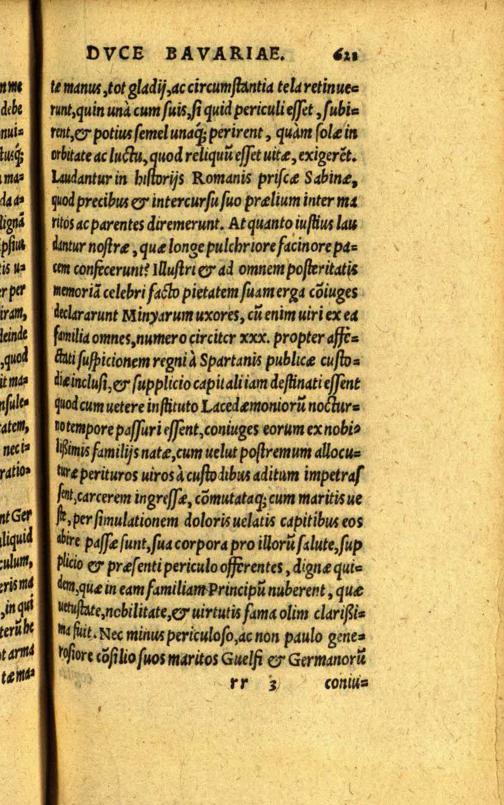 DVCE BAVARIAE. 621
te manus, tot gladij, ac circumstantia tela retinue=
runt, quin unà cum suis, si quid periculi esset, subi=
rent, & potius semel unaq; perirent, quàm solæ in
orbitate ac luctu, quod reliquũ esset uitæ, exigerẽt.
Laudantur in historijs Romanis priscæ Sabinæ,
quod precibus & intercursu suo prælium inter ma
ritos ac parentes diremerunt. At quanto iustius lau
dantur nostræ, quæ longe pulchriore facinore pa=
cem confecerunt? Illustri & ad omnem posteritatis
memoriã celebri facto pietatem suam erga cõiuges
declararunt Minyarum uxores, cũ enim uiri ex ea
familia omnes, numero circitcr xxx. propter affe=
ctati suspicionem regni à Spartanis publicæ custo=
diæ inclusi, & supplicio capitali iam destinati essent
quod cum uetere instituto Lacedæmoniorũ noctur=
no tempore passuri essent, coniuges eorum ex nobi=
lissimis familijs natæ, cum uelut postremum allocu=
turæ perituros uiros à custodibus aditum impetras
sent, carcerem ingressæ, cõmutataq; cum maritis ue
ste, per simulationem doloris uelatis capitibus eos
abire passæ sunt, sua corpora pro illorũ salute, sup
plicio & præsenti periculo offerentes, dignæ qui=
dem, quæ in eam familiam Principũ nuberent, quæ
uetustate, nobilitate, & uirtutis fama olim clarißi=
ma fuit. Nec minus periculoso, ac non paulo gene=
rosiore cõsilio suos maritos Guelfi & Germanorũ
rr 3 coniu=